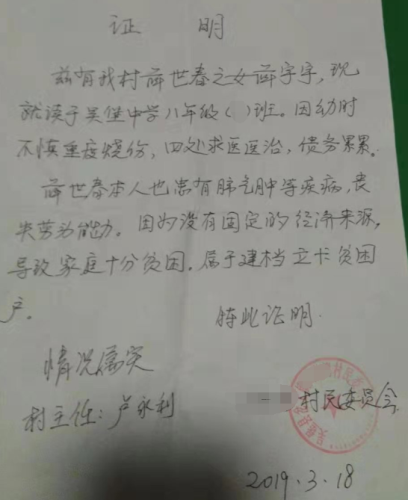 证 明
兹有我村薛世春之女薛宇宇,现
就读于吴堡中学八年级( )班。因幼时
不慎重度烧伤,四处求医医治,债务累累。
薛世春本人也患有肺气肿等疾病,丧
失劳动能力。因为没有固定的经济来源,
导致家庭十分贫困,属于建档立卡贫困
户。
特此证明.
情况属实
村主任:卢永利
村民委员会
2019.3.18